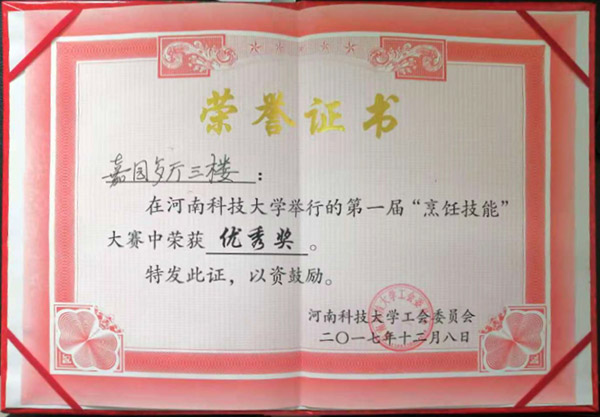 荣誉证书
嘉园餐厅三楼：
在河南科技大学举行的第一届“烹饪技能”
大赛中荣获 优秀奖 。
特发此证，以资鼓励。
河南科技大学工会委员会
二〇一七年十二月八日